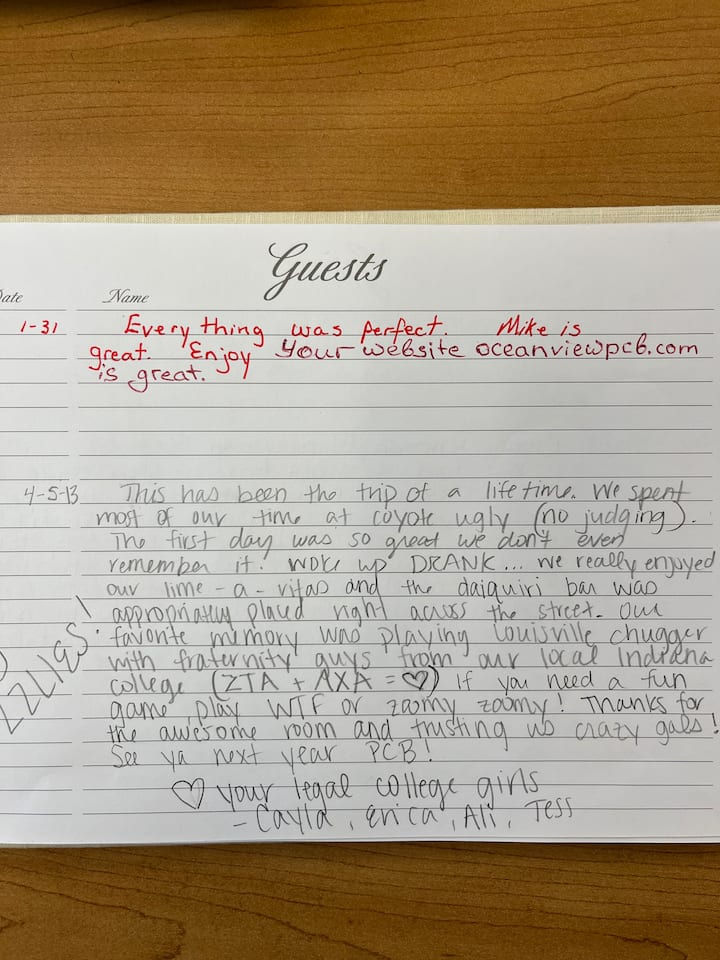 Guests
Date Name
1-31 Everything was perfect. Mike is
great. Enjoy your website oceanviewpcb.com
is great.
4-5-13 This has been the trip of a life time. We spent
most of our time at coyote ugly (no judging).
The first day was so great we don't even
remember it! woke up DRANK... we really enjoyed
our lime-a-ritas and the daiquiri bar was
appropriatly placed right across the street. Our
favorite memory was playing Louisville chugger
with fraternity guys from our local Indiana
college (ZTA + ΛXA = ♡) If you need a fun
game, play WTF or zoomy zoomy! Thanks for
the awesome room and trusting us crazy gals!
See ya next year PCB!
♡ your legal college girls
- Cayla, Erica, Ali, Tess